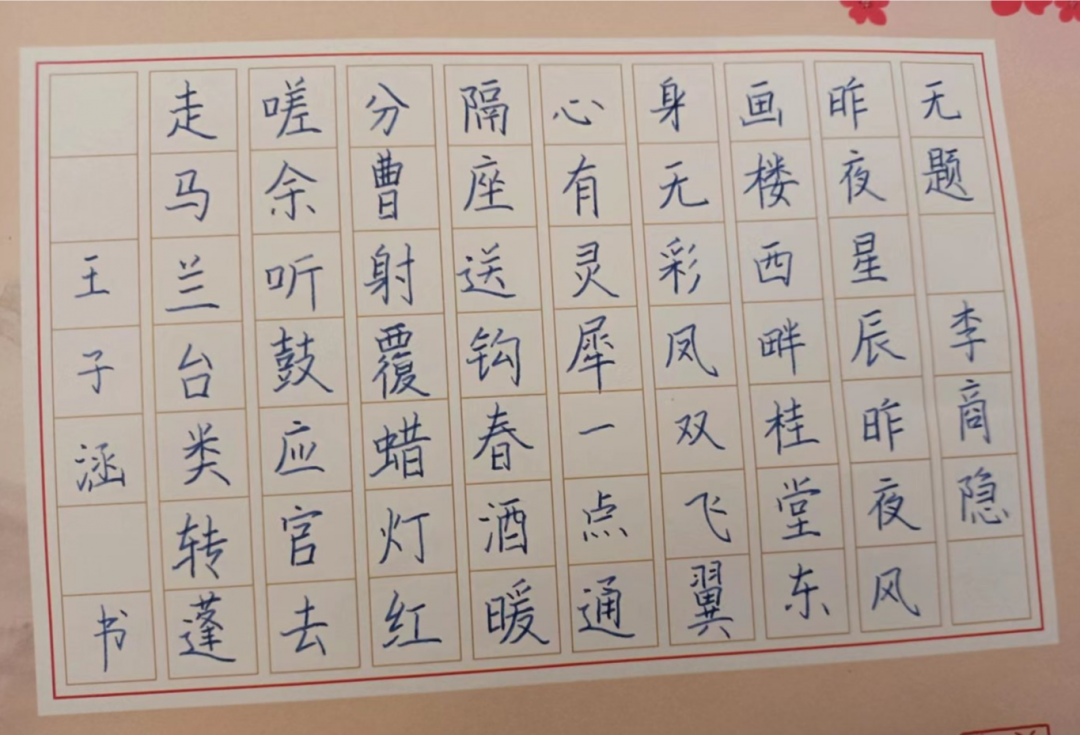 无题李商隐
昨夜星辰昨夜风
画楼西畔桂堂东
身无彩凤双飞翼
心有灵犀一点通
隔座送钩春酒暖
分曹射覆蜡灯红
嗟余听鼓应官去
走马兰台类转蓬
王子涵书